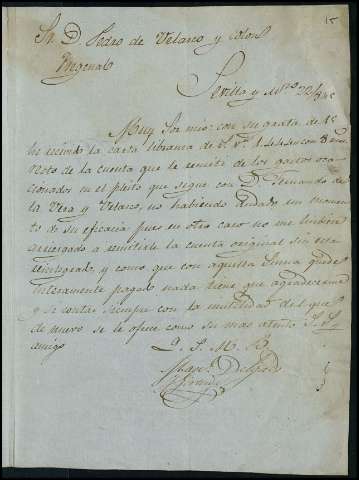 15
Sr. D. Pedro de Velasco y Colon
Fregenal
Sevilla y
Muy Sor. mio: con su grata de 15
he recivido la carta libranza de rs. vn. con 8 mrs.
resto de la cuenta que le remiti de los gastos oca-
cionados en el pleito que sigue con Dn. Fernando de
la Vera y Velasco, no habiendo dudado un momen-
to de su eficacia pues en otro caso no me hubiera
arriesgado a remitirle la cuenta original sin estar
reintegrado, y como que con aquella suma quede
interamente pagado nada tiene que agradecerme
y si contar siempre con la inutilidad del que
de nuevo se le ofrece como su mas atento S. S.
amigo
Q. S. M. B.
Man. Delgado